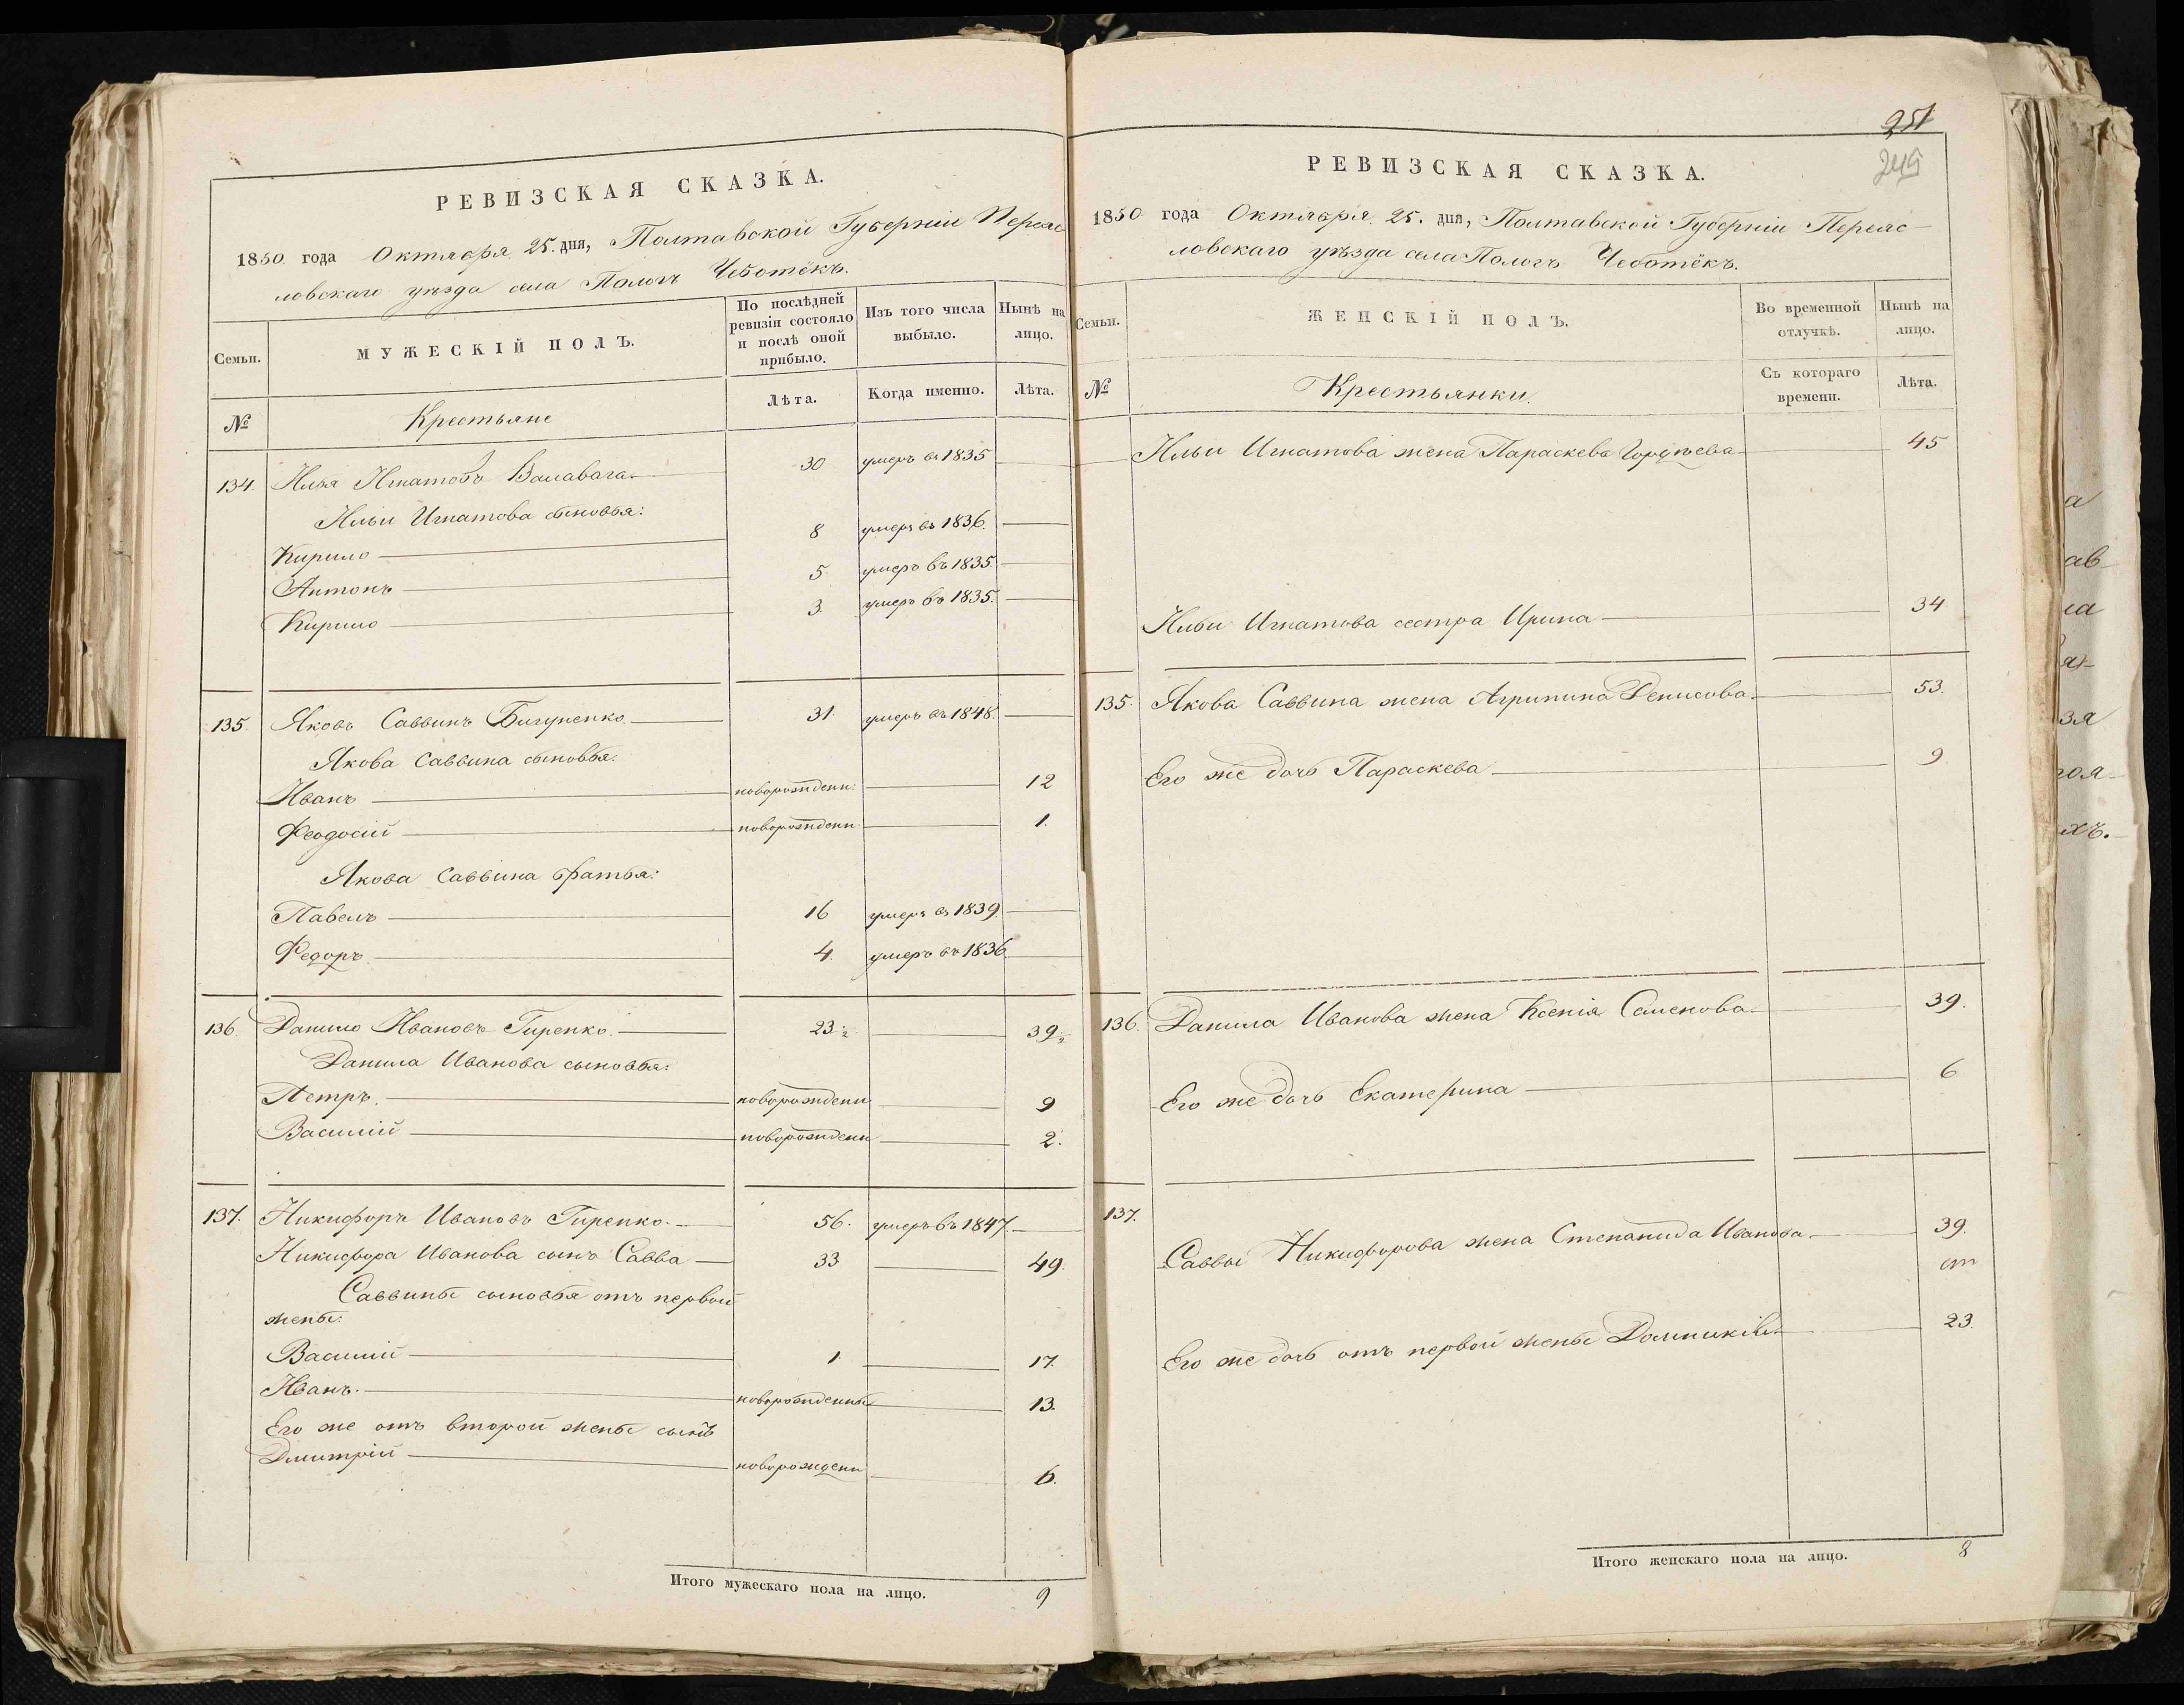 РЕВИЗСКАЯ СКАЗКА.
1850 года Октября 25. дня, Полтавской Губерніи Переяс
ловскаго уѣзда села Пологъ Чеботёкъ.
Семьи.
МУЖЕСКІЙ ПОЛЪ.
По послѣдней ревизіи состояло и послѣ оной прибыло.
Изъ того числа выбыло.
Нынѣ на лицо.
№
Крестьяне
Лѣта.
Когда именно.
Лѣта.
134. Илья Игнатовъ 30 умеръ въ 1835
Ильи Игнатова сыновья:
Кирило 8 умеръ въ 1836.
Антонъ 5. умеръ въ 1835.
Кирило 3. умеръ въ 1835.
135. Яковъ Саввинъ Бигуненко. 31. умеръ въ 1848.
Якова Саввина сыновья:
Иванъ новорожденн: 12
Феодосій новорожденн. 1.
Якова Саввина братья:
Павелъ 16 умеръ въ 1839.
Федоръ. 4. умеръ въ 1836.
136. Данило Ивановъ Гиренко. 23 ½ 39 ½
Данила Иванова сыновья:
Петръ. новорожденн 9
Василій новорожденн 2.
137. Никифоръ Ивановъ Гиренко. 56. умеръ въ 1847.
Никифора Иванова сынъ Савва 33 49.
Саввины сыновья отъ первой
жены:
Василій 1. 17.
Иванъ. новорожденный 13.
Его же отъ второй жены сынъ
Дмитрій новорожденн 6.
Итого мужескаго пола на лицо. 9
251
249
РЕВИЗСКАЯ СКАЗКА.
1850 года Октября 25. дня, Полтавской Губерніи Переяс-
ловскаго уѣзда села Пологъ Чеботёкъ.
Семьи.
ЖЕНСКІЙ ПОЛЪ.
Во временной отлучкѣ.
Нынѣ на лицо.
№
Крестьянки.
Съ котораго времени.
Лѣта.
Ильи Игнатова жена Параскева Гордѣева 45
Ильи Игнатова сестра Ирина 34
135. Якова Саввина жена Агрипина Денисова. 53.
Его же дочь Параскева 9
136. Данила Иванова жена Ксенія Семенова. 39.
Его же дочь Екатерина 6
137.
Саввы Никифорова жена Степанида Иванова. 39.
Его же дочь отъ первой жены 23.
Итого женскаго пола на лицо. 8